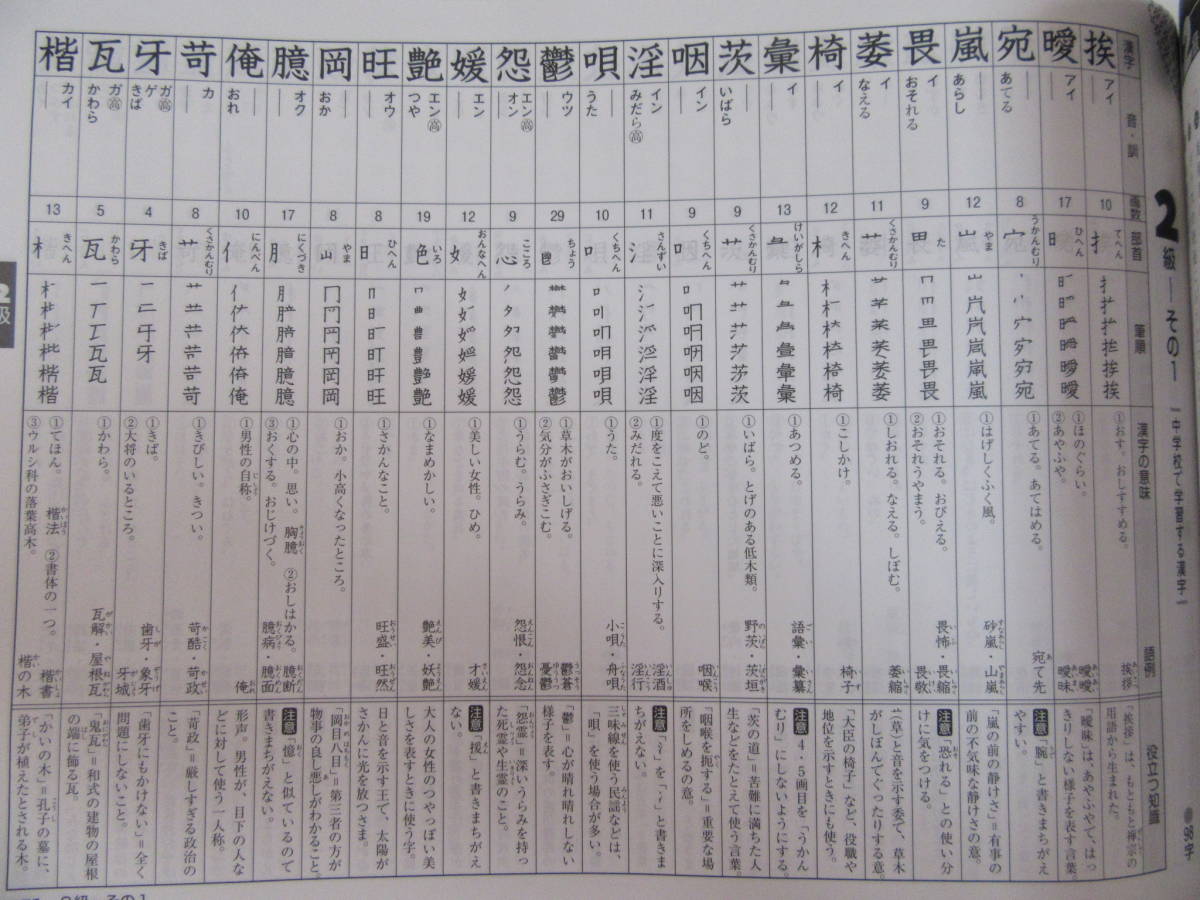 2級―その1
中学校で学習する漢字
98字
漢字
音・訓
画数
部首
筆順
漢字の意味
語例
役立つ知識
挨
アイ
10
てへん
①おす。おしすすめる。
挨拶
「挨拶」は、もともと禅宗の
用語から生まれた。
曖
アイ
17
ひへん
①ほのぐらい。
②あやふや。
曖曖
曖昧
「曖昧」は、あやふやで、はっ
きりしない様子を表す言葉。
宛
あてる
8
うかんむり
①あてる。あてはめる。
宛て先
注意「腕」と書きまちがえ
やすい。
嵐
あらし
12
やま
①はげしくふく風。
砂嵐・山嵐
「嵐の前の静けさ」=有事の
前の不気味な静けさの意。
畏
イ
おそれる
9
た
①おそれる。おびえる。
②おそれうやまう。
畏怖・畏縮
畏敬
注意「恐れる」との使い分
けに気をつける。
萎
イ
なえる
11
くさかんむり
①しおれる。なえる。しぼむ。
萎縮
艹(草)と音を示す委で、草木
がしぼんでぐったりする意。
椅
イ
12
きへん
①こしかけ。
椅子
「大臣の椅子」など、役職や
地位を示すときにも使う。
彙
イ
13
けいがしら
①あつめる。
語彙・彙纂
注意 4・5画目を「うかん
むり」にしないようにする。
茨
いばら
9
くさかんむり
①いばら。とげのある低木類。
野茨・茨垣
「茨の道」=苦難に満ちた人
生などをたとえて使う言葉。
咽
イン
9
くちへん
①のど。
咽喉
「咽喉を扼する」=重要な場
所をしめるの意。
淫
イン
みだら高
11
さんずい
①度をこえて悪いことに深入りする。
②みだれる。
淫酒
淫行
唄
うた
10
くちへん
①うた。
小唄・舟唄
三味線を使う民謡などは、
「唄」を使う場合が多い。
鬱
ウツ
29
ちょう
①草木がおいしげる。
②気分がふさぎこむ。
鬱蒼
憂鬱
「鬱」=心が晴れ晴れしない
様子を表す。
怨
エン高
オン
9
こころ
①うらむ。うらみ。
怨恨・怨念
「怨霊」=深いうらみを持っ
た死霊や生霊のこと。
媛
エン
12
おんなへん
①美しい女性。ひめ。
才媛
注意「援」と書きまちがえ
ない。
艶
エン高
つや
19
いろ
①なまめかしい。
艶美・妖艶
大人の女性のつやっぽい美
しさを表すときに使う字。
旺
オウ
8
ひへん
①さかんなこと。
旺盛・旺然
日と音を示す王で、太陽が
さかんに光を放つさま。
岡
おか
8
やま
①おか。小高くなったところ。
「岡目八目」=第三者の方が
物事の良し悪しがわかること。
臆
オク
17
にくづき
①心の中。思い。 胸臆 ②おしはかる。 臆断
③おくする。おじけづく。 臆病・臆面
注意「憶」と似ているので
書きまちがえない。
俺
おれ
10
にんべん
①男性の自称。
俺
形声。男性が、目下の人な
どに対して使う一人称。
苛
カ
8
くさかんむり
①きびしい。きつい。
苛酷・苛政
「苛政」=厳しすぎる政治の
こと。
牙
ガ高
ゲ
きば
4
きば
①きば。
②大将のいるところ。
歯牙・象牙
牙城
「歯牙にもかけない」=全く
問題にしないこと。
瓦
ガ高
かわら
5
かわら
①かわら。
瓦解・屋根瓦
「鬼瓦」=和式の建物の屋根
の端に飾る瓦。
楷
カイ
13
きへん
①てほん。 楷法 ②書体の一つ。 楷書
③ウルシ科の落葉高木。 楷の木
「かいの木」=孔子の墓に、
弟子が植えたとされる木。
2級
2級 その1